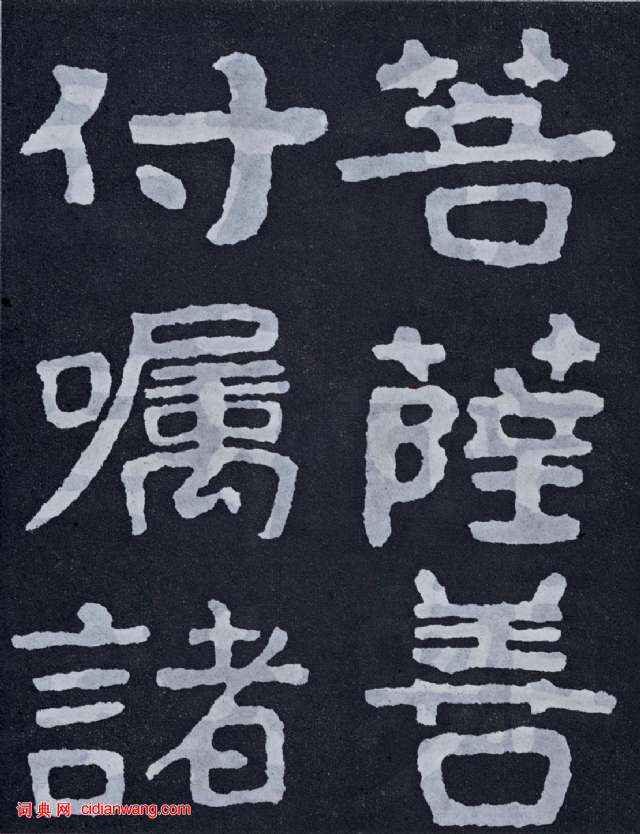 菩薩善
付囑諸
词典网 cidianwang.com